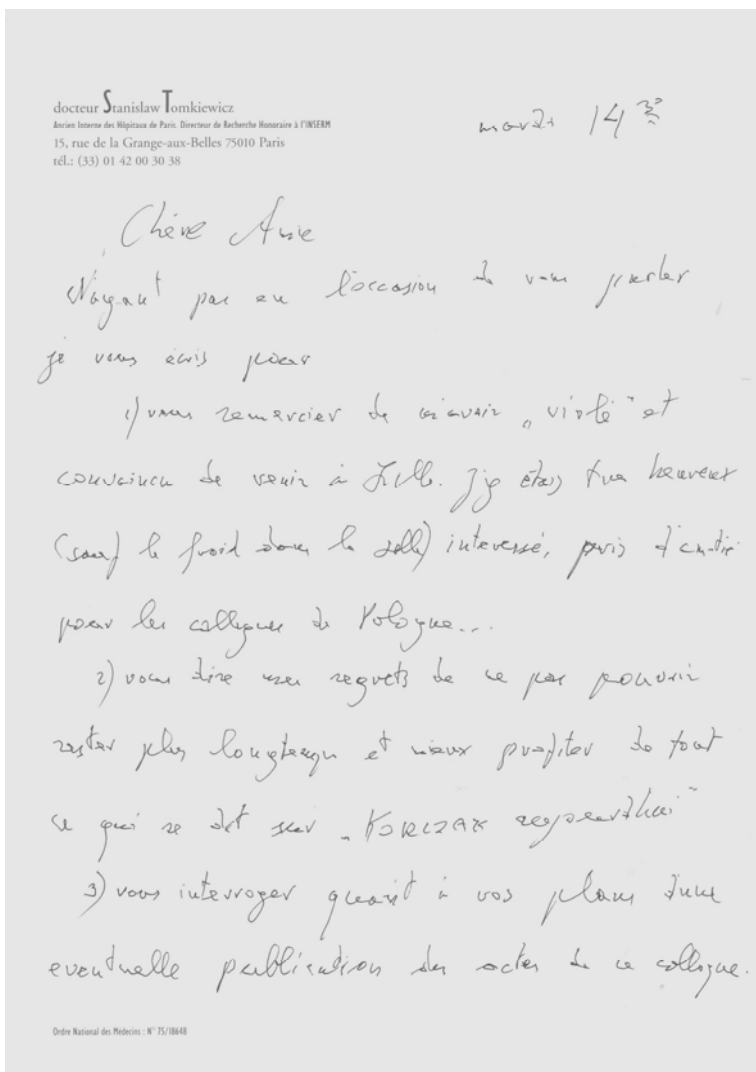 docteur Stanislaw Tomkiewicz
Ancien Interne des Hôpitaux de Paris. Directeur de Recherche Honoraire à l'INSERM
15, rue de la Grange-aux-Belles 75010 Paris
tél.: (33) 01 42 00 30 38
mardi 14
Chère Anne
N'ayant pas eu l'occasion de vous parler
je vous écris pour
1) vous remercier de m'avoir „violé" et
convaincu de venir à Lille. J'y étais très heureux
(sauf le froid dans la salle) interessé, pris d'amitié
pour les collègues de Pologne...
2) vous dire mes regrets de ne pas pouvoir
rester plus longtemps et mieux profiter de tout
ce qui se dit sur „KORCZAK aujourd'hui"
3) vous interroger quant à vos plans d'une
eventuelle publication des actes de ce colloque.
Ordre National des Medecins : N° 75/18648